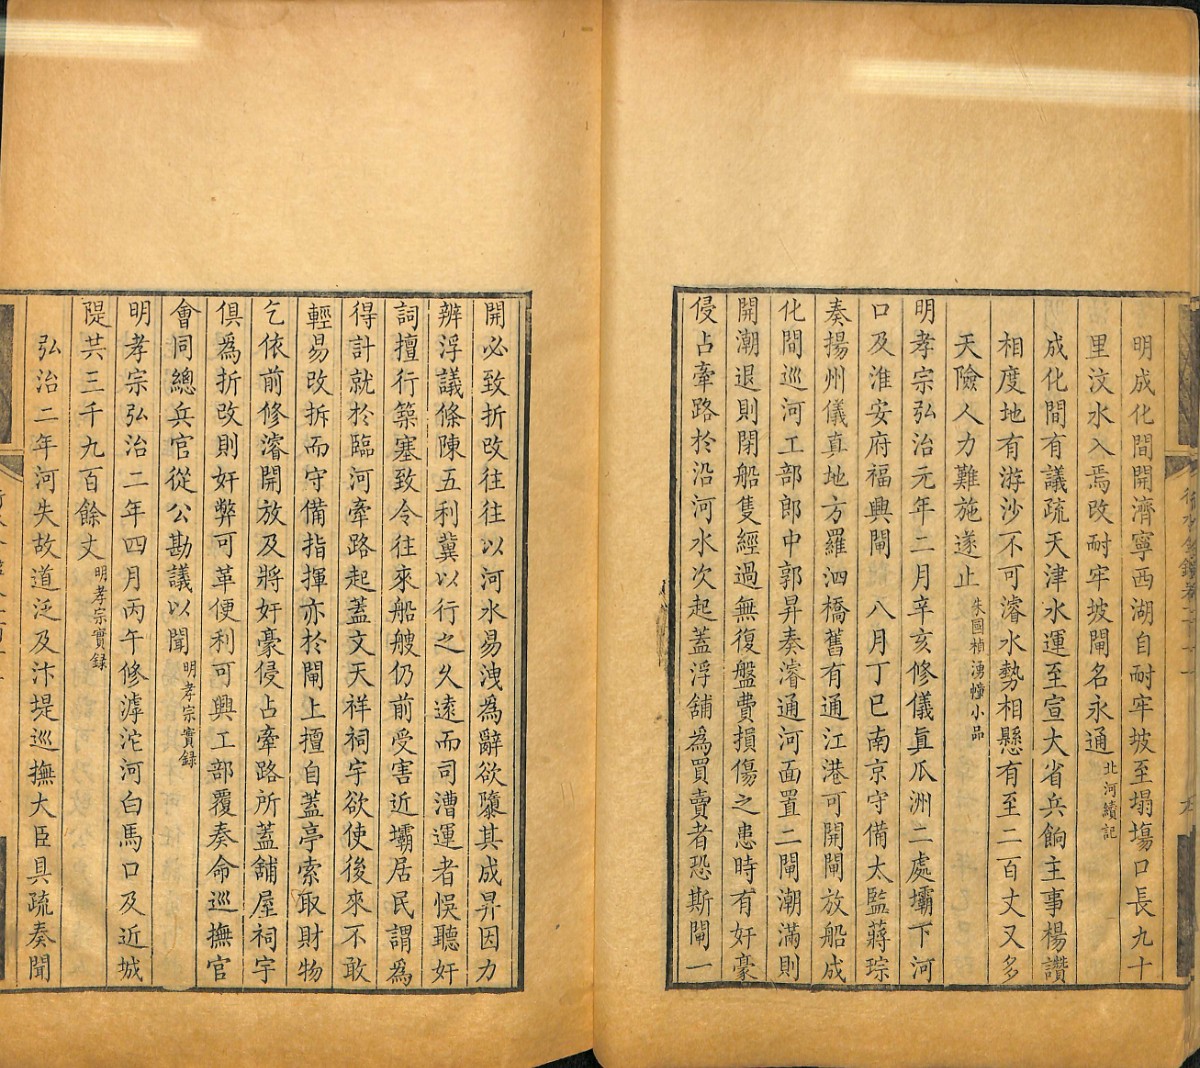 明成化間開濟寧西湖自耐牢坡至塌塲口長九十
里汶水入焉改耐牢坡閘名永通北河續記
成化間有議疏天津水運至宣大省兵餉主事楊讚
相度地有游沙不可濬水勢相懸有至二百丈又多
天險人力難施遂止朱國楨湧幢小品
明孝宗弘治元年二月辛亥修儀眞瓜洲二處壩下河
口及淮安府福興閘　八月丁巳南京守備太監蔣琮
奏揚州儀真地方羅泗橋舊有通江港可開閘放船成
化間巡河工部郎中郭昇奏濬通河面置二閘潮滿則
開潮退則閉船隻經過無復盤費損傷之患時有奸豪
侵占牽路於沿河水次起蓋浮舖為買賣者恐斯閘一
開必致折改往往以河水易洩爲辭欲隳其成昇因力
辨浮議條陳五利冀以行之久遠而司漕運者悞聽奸
詞擅行築塞致令往來船艘仍前受害近壩居民謂爲
得計就於臨河牽路起蓋文天祥祠宇欲使後來不敢
輕易改拆而守備指揮亦於閘上擅自蓋亭索取財物
乞依前修濬開放及將奸豪侵占牽路所蓋舖屋祠宇
俱爲折改則奸弊可革便利可興工部覆奏命巡撫官
會同總兵官從公勘議以聞明孝宗實録
明孝宗弘治二年四月丙午修滹沱河白馬口及近城
隄共三千九百餘丈明孝宗實録
弘治二年河失故道泛及汴堤巡撫大臣具疏奏聞